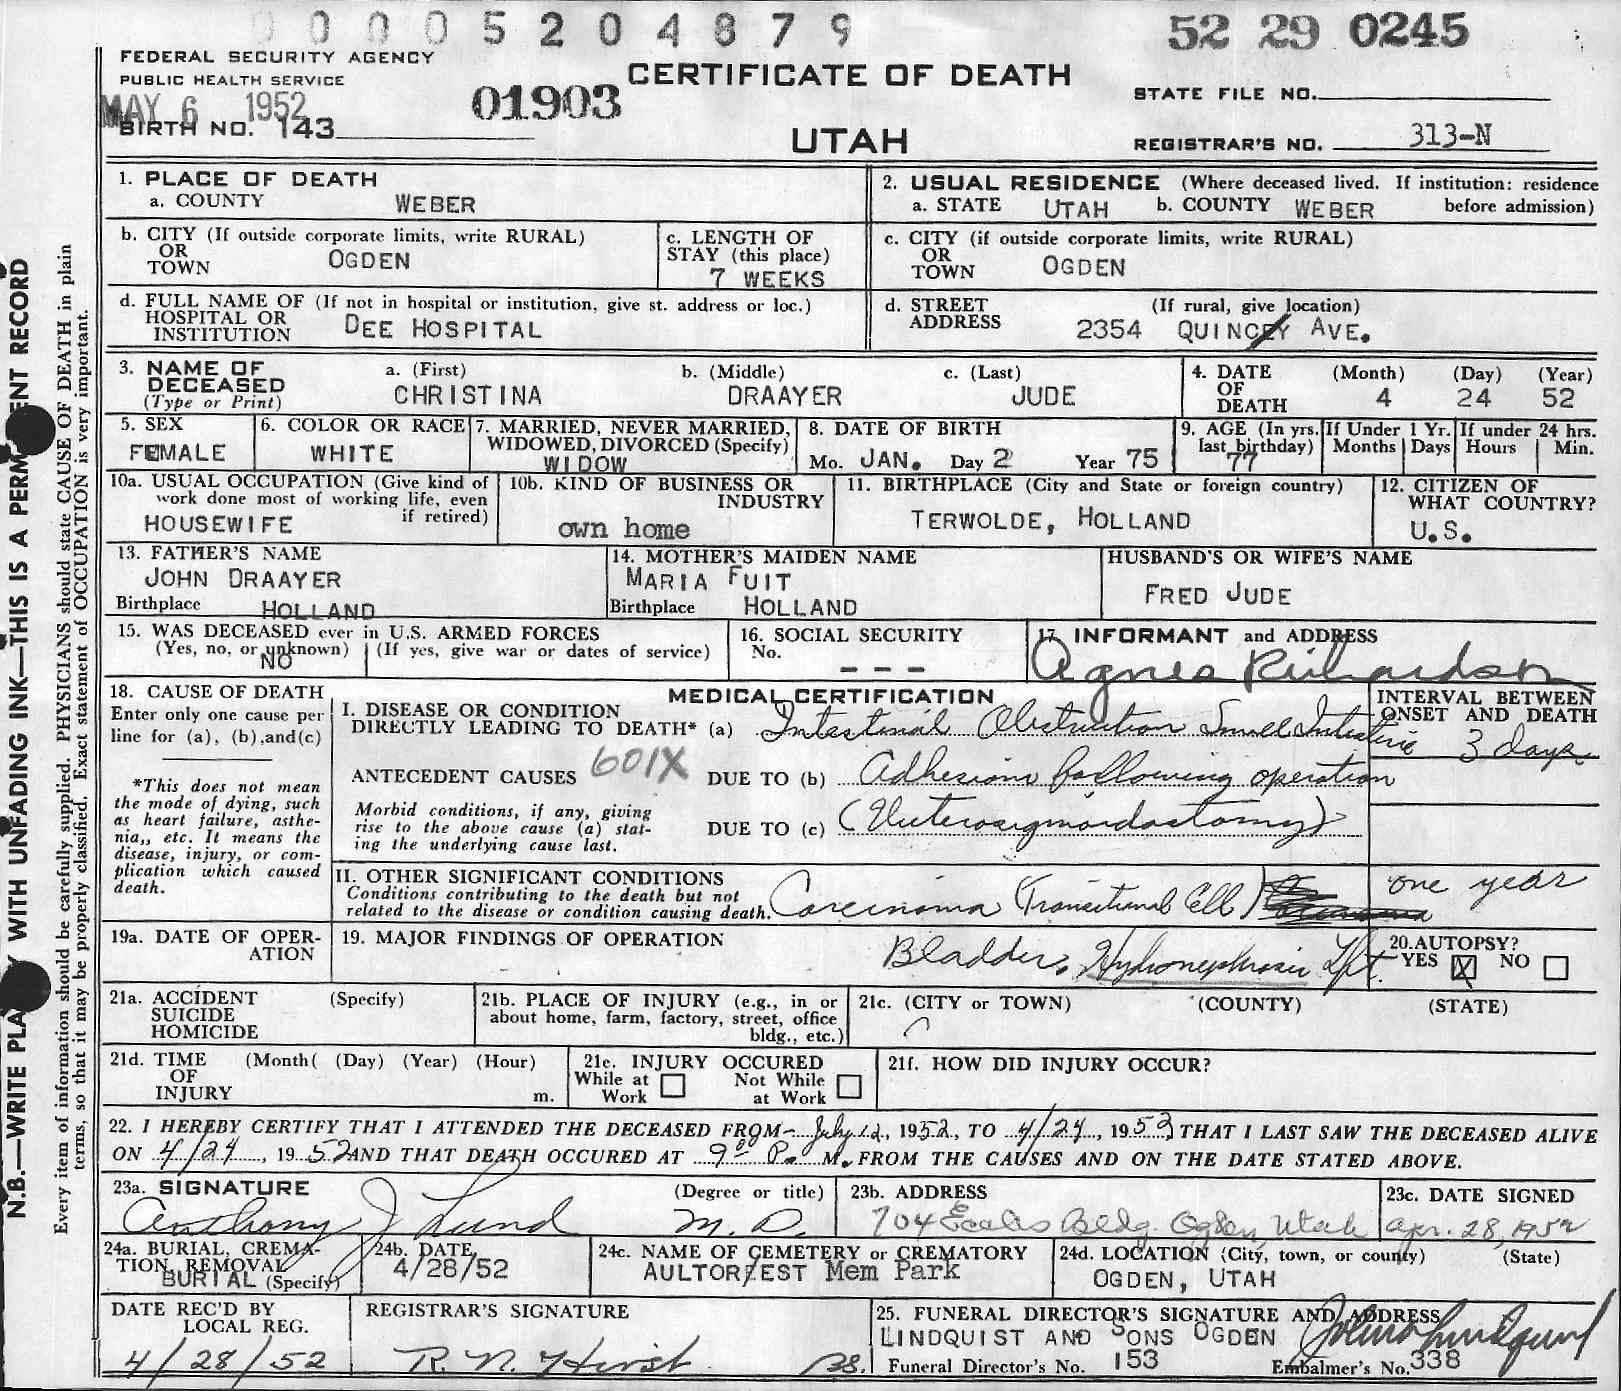 0 0 0 0 5 2 0 4 8 7 9
52 29 0245
FEDERAL SECURITY AGENCY
PUBLIC HEALTH SERVICE
MAY 6 1952
BIRTH NO. 143
01903
CERTIFICATE OF DEATH
UTAH
STATE FILE NO.
REGISTRAR'S NO. 313-N
N.B.—WRITE PLA Y WITH UNFADING INK—THIS IS A PERM ENT RECORD
Every item of information should be carefully supplied. PHYSICIANS should state CAUSE OF DEATH in plain
terms, so that it may be properly classified. Exact statement of OCCUPATION is very important.
1. PLACE OF DEATH
a. COUNTY WEBER
2. USUAL RESIDENCE (Where deceased lived. If institution: residence
a. STATE UTAH b. COUNTY WEBER before admission)
b. CITY (If outside corporate limits, write RURAL)
OR
TOWN OGDEN
c. LENGTH OF
STAY (this place)
7 WEEKS
c. CITY (if outside corporate limits, write RURAL)
OR
TOWN OGDEN
d. FULL NAME OF (If not in hospital or institution, give st. address or loc.)
HOSPITAL OR
INSTITUTION DEE HOSPITAL
d. STREET (If rural, give location)
ADDRESS 2354 QUINCEY AVE.
3. NAME OF
DECEASED
(Type or Print)
a. (First) b. (Middle) c. (Last)
CHRISTINA DRAAYER JUDE
4. DATE (Month) (Day) (Year)
OF
DEATH 4 24 52
5. SEX
FEMALE
6. COLOR OR RACE
WHITE
7. MARRIED, NEVER MARRIED,
WIDOWED, DIVORCED (Specify)
WIDOW
8. DATE OF BIRTH
Mo. JAN. Day 2 Year 75
9. AGE (In yrs.
last birthday)
77
If Under 1 Yr.
Months Days
If under 24 hrs.
Hours Min.
10a. USUAL OCCUPATION (Give kind of
work done most of working life, even
if retired)
HOUSEWIFE
10b. KIND OF BUSINESS OR
INDUSTRY
own home
11. BIRTHPLACE (City and State or foreign country)
TERWOLDE, HOLLAND
12. CITIZEN OF
WHAT COUNTRY?
U.S.
13. FATHER'S NAME
JOHN DRAAYER
Birthplace HOLLAND
14. MOTHER'S MAIDEN NAME
MARIA FUIT
Birthplace HOLLAND
HUSBAND'S OR WIFE'S NAME
FRED JUDE
15. WAS DECEASED ever in U.S. ARMED FORCES
(Yes, no, or unknown) (If yes, give war or dates of service)
NO
16. SOCIAL SECURITY
No. ---
17. INFORMANT and ADDRESS
Agnes Richardson
18. CAUSE OF DEATH
Enter only one cause per
line for (a), (b), and (c)
*This does not mean
the mode of dying, such
as heart failure, asthe-
nia,, etc. It means the
disease, injury, or com-
plication which caused
death.
MEDICAL CERTIFICATION
INTERVAL BETWEEN
ONSET AND DEATH
I. DISEASE OR CONDITION
DIRECTLY LEADING TO DEATH* (a) Intestinal Obstruction Small Intestine 3 days
ANTECEDENT CAUSES 601X DUE TO (b) Adhesions following operation
Morbid conditions, if any, giving
rise to the above cause (a) stat-
ing the underlying cause last.
DUE TO (c) (Ureterosigmoidostomy)
II. OTHER SIGNIFICANT CONDITIONS
Conditions contributing to the death but not
related to the disease or condition causing death.
Carcinoma (Transitional Cell) one year
Bladder, Hydronephrosis Lft.
19a. DATE OF OPER-
ATION
19. MAJOR FINDINGS OF OPERATION
20. AUTOPSY?
YES X NO
21a. ACCIDENT (Specify)
SUICIDE
HOMICIDE
21b. PLACE OF INJURY (e.g., in or
about home, farm, factory, street, office
bldg., etc.)
21c. (CITY or TOWN) (COUNTY) (STATE)
21d. TIME (Month( (Day) (Year) (Hour)
OF
INJURY m.
21e. INJURY OCCURED
While at Work Not While at Work
21f. HOW DID INJURY OCCUR?
22. I HEREBY CERTIFY THAT I ATTENDED THE DECEASED FROM- July 12, 1952, TO 4/24, 1952, THAT I LAST SAW THE DECEASED ALIVE
ON 4/24, 1952 AND THAT DEATH OCCURED AT 9 P. M. FROM THE CAUSES AND ON THE DATE STATED ABOVE.
23a. SIGNATURE (Degree or title)
Anthony J Lund M.D.
23b. ADDRESS
704 Eccles Bldg. Ogden, Utah
23c. DATE SIGNED
Apr. 28, 1952
24a. BURIAL, CREMA-
TION, REMOVAL
BURIAL (Specify)
24b. DATE
4/28/52
24c. NAME OF CEMETERY or CREMATORY
AULTOREST Mem Park
24d. LOCATION (City, town, or county) (State)
OGDEN, UTAH
DATE REC'D BY
LOCAL REG.
4/28/52
REGISTRAR'S SIGNATURE
R. N. Hirst
25. FUNERAL DIRECTOR'S SIGNATURE AND ADDRESS
LINDQUIST AND SONS OGDEN
Funeral Director's No. 153 Embalmer's No. 338